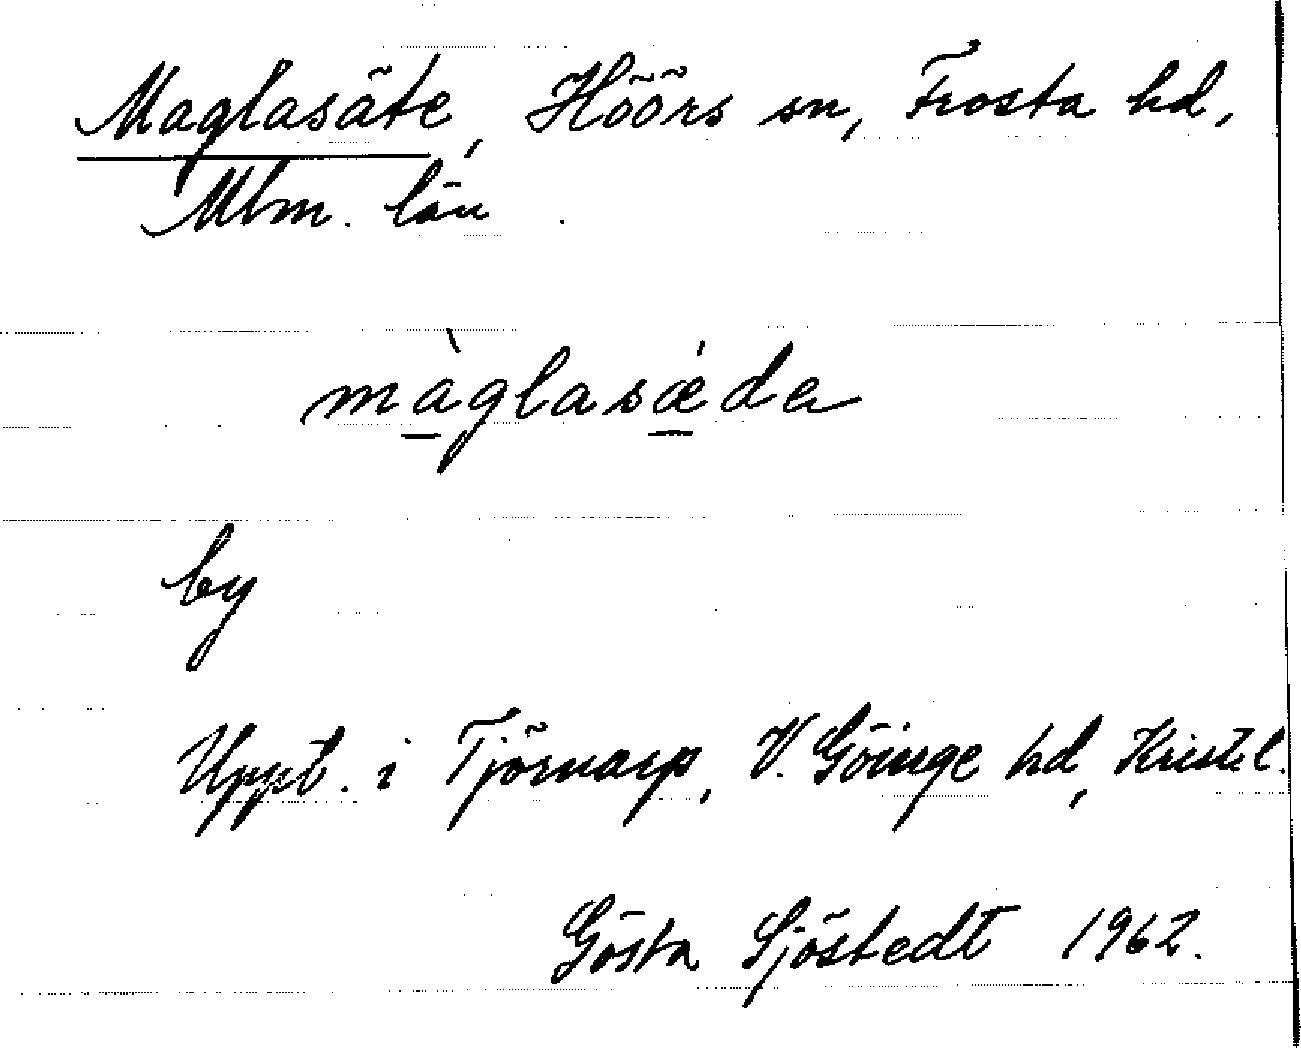 Maglasäte, Höörs sn, Frosta hd,
Mlm. län
màglasǽda
by
Uppt. i Tjörnarp, V. Göinge hd, Kristi.
Gösta Sjöstedt 1962.